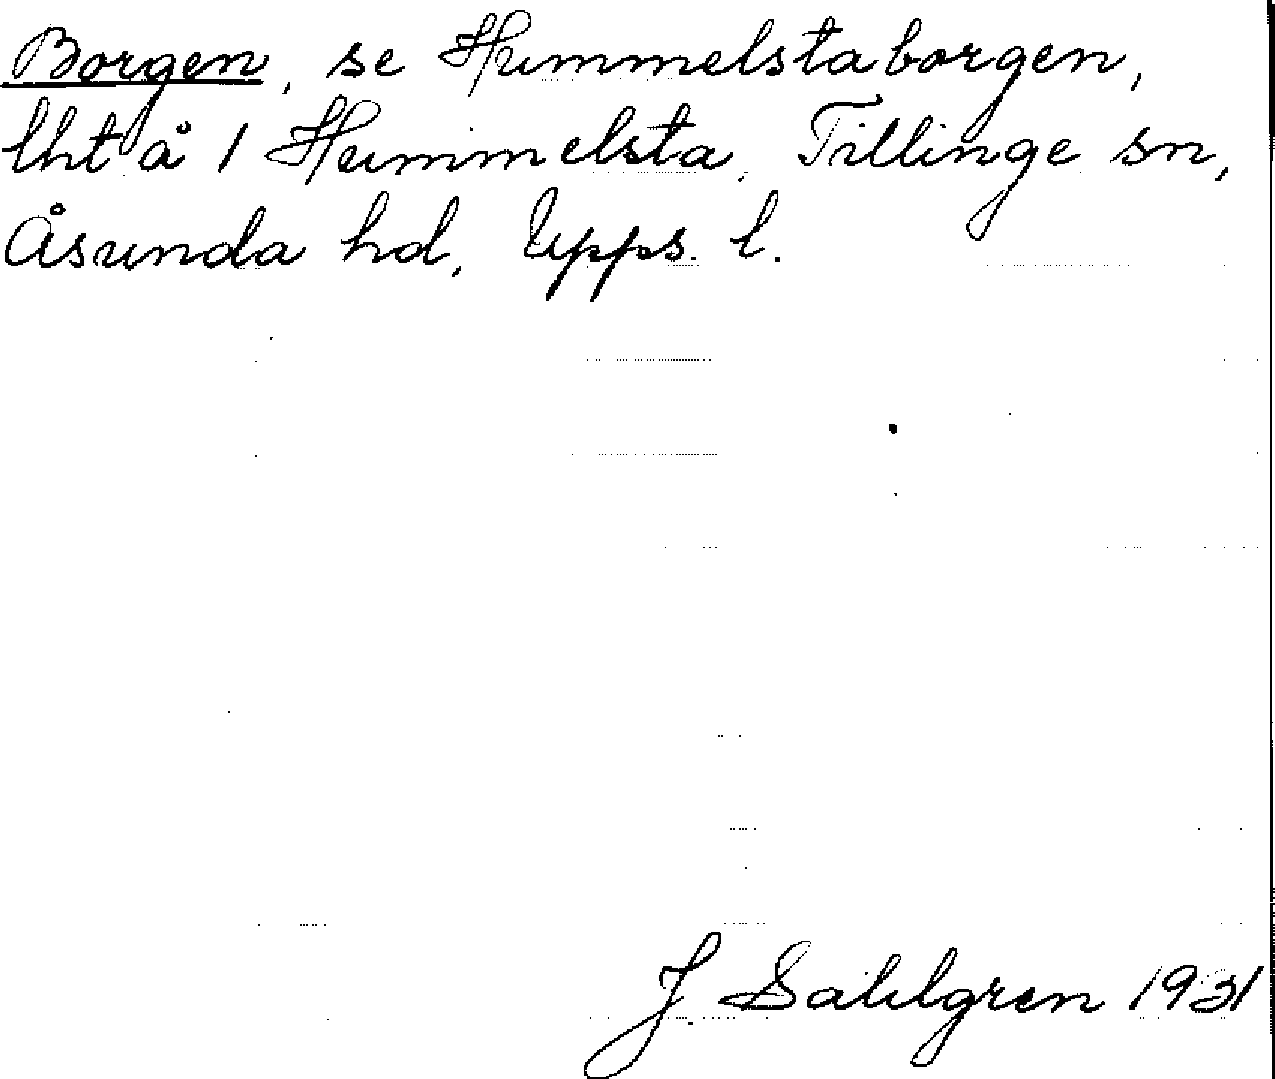 Borgen, se Hummelstaborgen,
lht å 1 Hummelsta, Tillinge sn,
Åsunda hd, Upps. l.
J. Sahlgren 1931